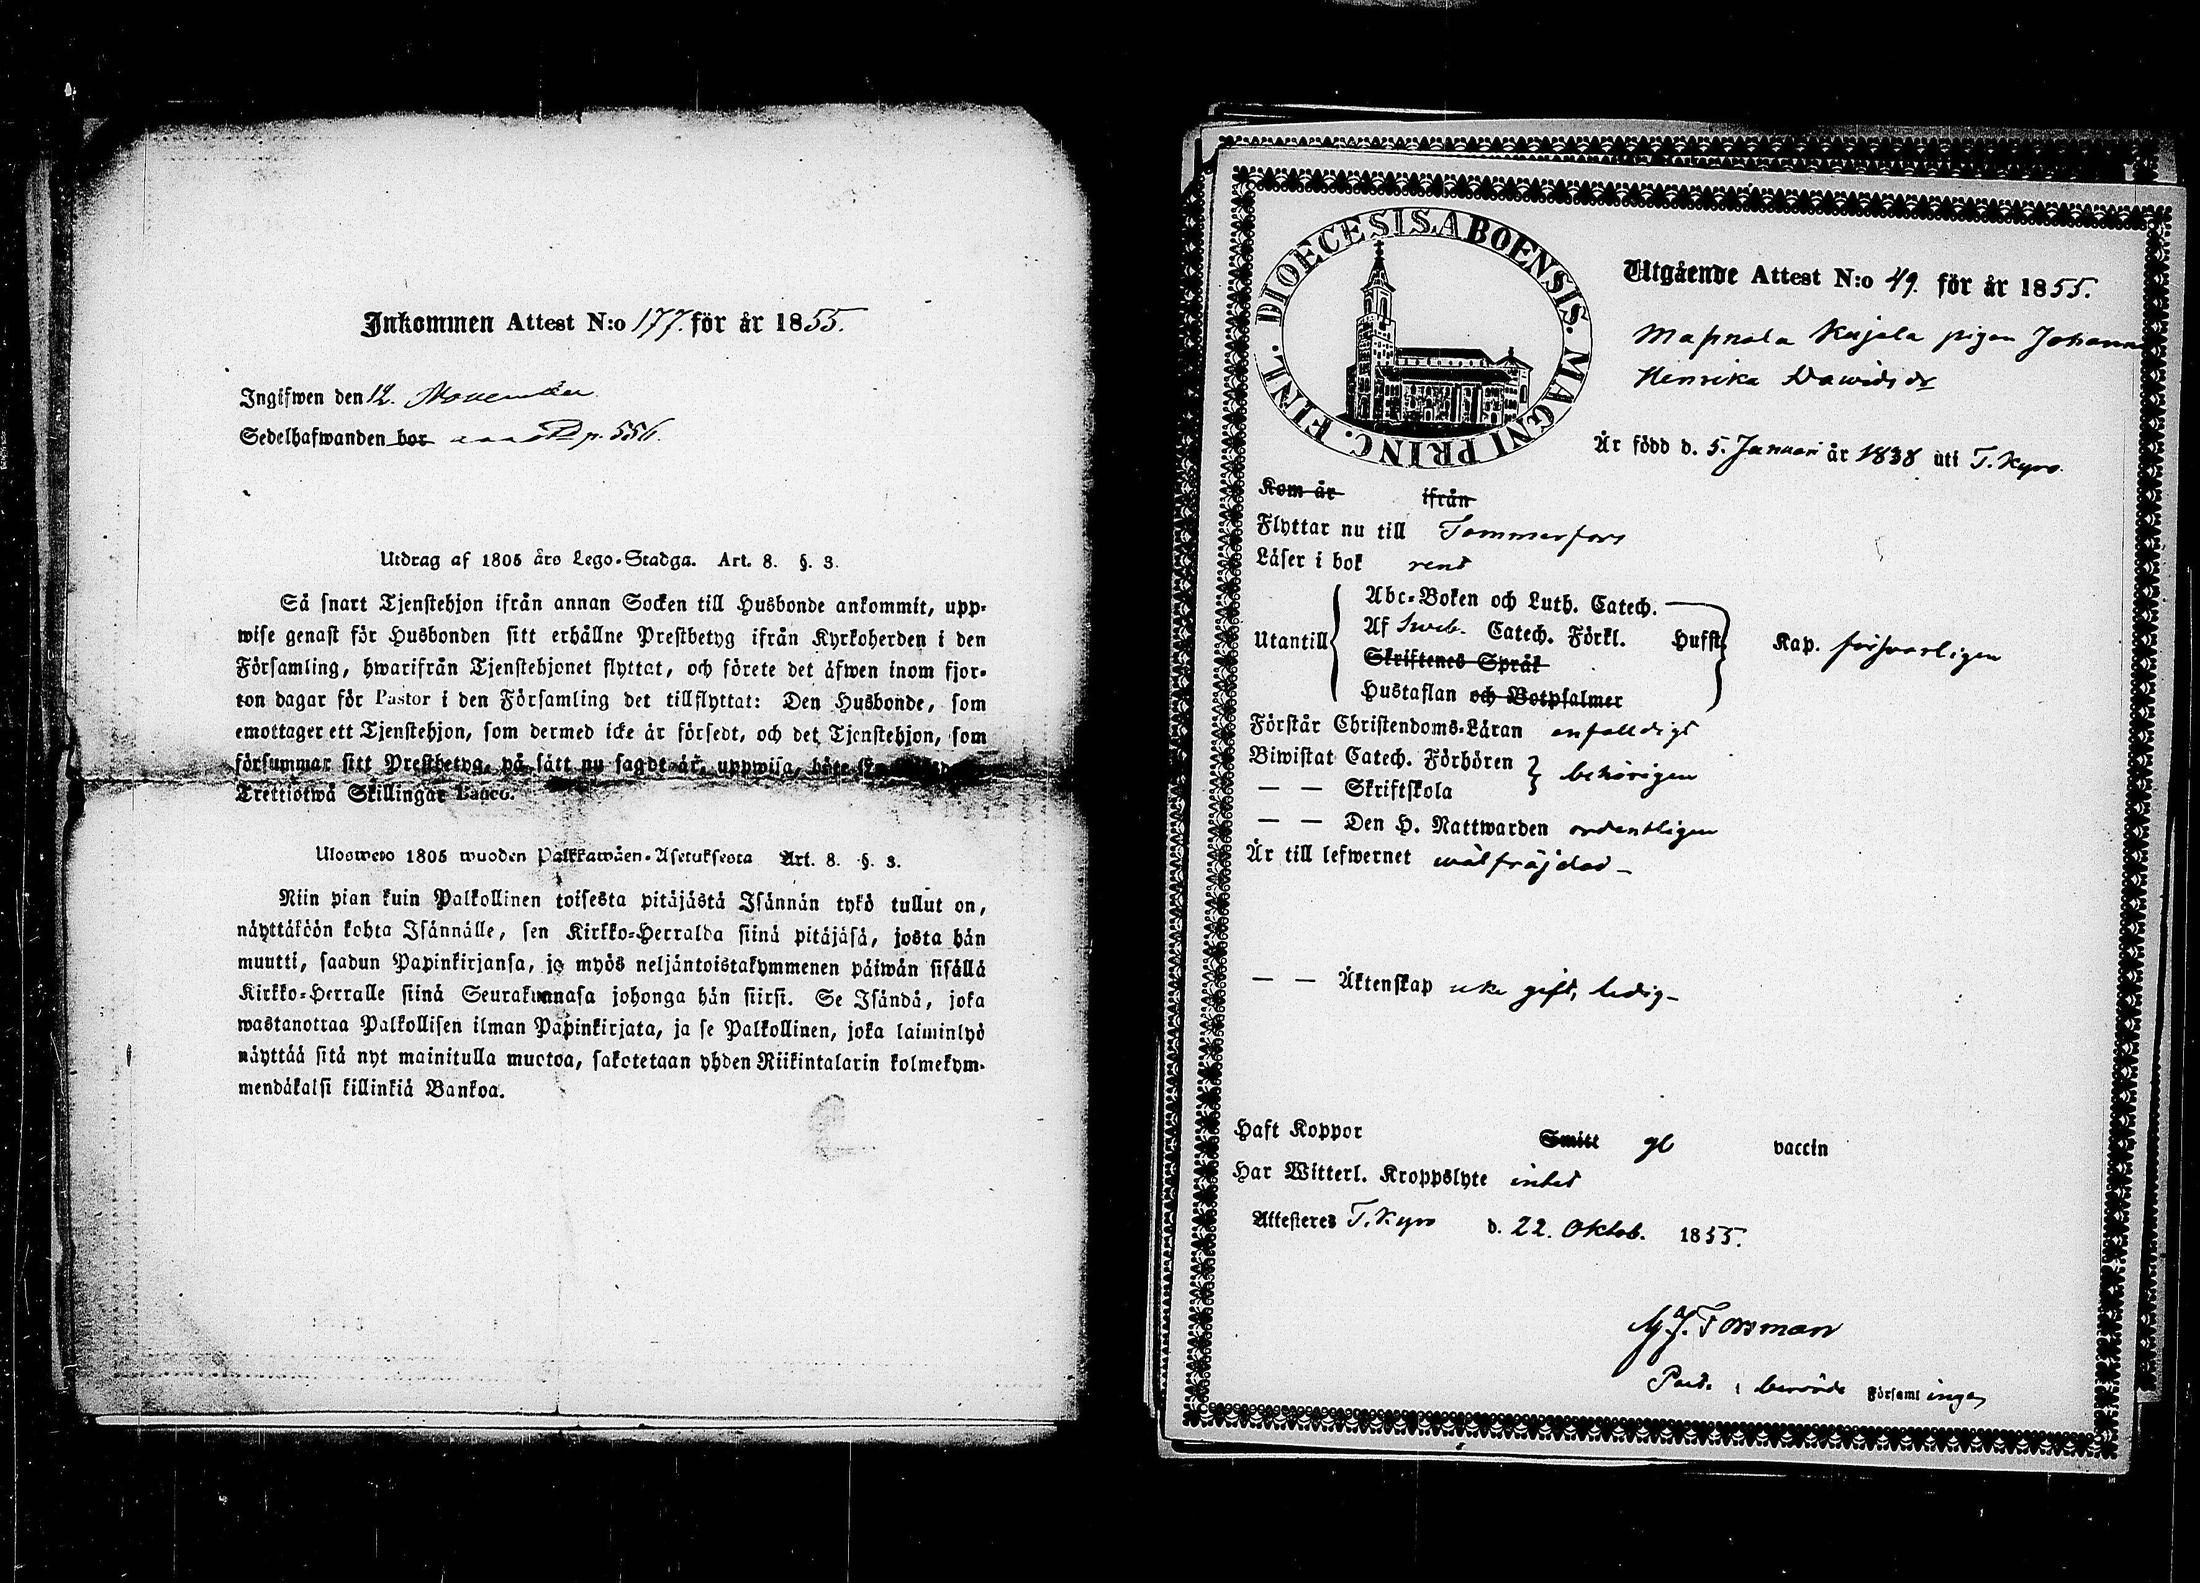 Inkommen Attest N:o 177. för år 1855.
Ingifwen den 12. November
Sedelhafwanden bor p. 556.
Utdrag af 1805 års Lego-Stadga. Art. 8. §. 3.
Så snart Tjenstehjon ifrån annan Socken till Husbonde ankommit, upp-
wise genast för Husbonden sitt erhållne Prestbetyg ifrån Kyrkoherden i den
Församling, hwarifrån Tjenstehjonet flyttat, och förete det äfwen inom fjor-
ton dagar för Pastor i den Församling det tillflyttat: Den Husbonde, som
emottager ett Tjenstehjon, som dermed icke är försedt, och det Tjenstehjon, som
försummar sitt Prestbetyg, på sätt nu sagdt är, uppwisa, böte
Trettiotwå Skillingar Banco.
Ulosweto 1805 wuoden Palkkawäen-Asetuksesta Art. 8. §. 3.
Niin pian kuin Palkollinen toisesta pitäjästä Isännän tykö tullut on,
näyttäköön kohta Isännälle, sen Kirkko-Herralda siinä pitäjäsä, josta hän
muutti, saadun Papinkirjansa, ja myös neljäntoistakymmenen päiwän sisällä
Kirkko-Herralle siinä Seurakunnasa johonga hän siirsi. Se Isändä, joka
wastanottaa Palkollisen ilman Papinkirjata, ja se Palkollinen, joka laiminlyö
näyttää sitä nyt mainitulla muotoa, sakotetaan yhden Riikintalarin kolmekym-
mendäkaksi killinkiä Bankoa.
DIOECESIS. ABOENSIS. MAGNI PRINC. FINL.
Utgående Attest N:o 49. för år 1855.
Kujala pigan Johanna
Henrika Davidsdr
Är född d. 5. Januari år 1838 uti T. Kyro.
Kom år ifrån
Flyttar nu till Tammerfors
Läser i bok rent
Utantill
Abc-Boken och Luth. Catech.
Af Sveb. Catech. Förkl. Husst. Kap. försvarligen
Skriftenes Språk
Hustaflan och Botpsalmer
Förstår Christendoms-Läran enfaldigt
Biwistat Catech. Förhören behörigen
— — Skriftskola
— — Den H. Nattwarden ordentligen
Är till lefwernet wälfräjdad –
— — Äktenskap icke gift, ledig –
Haft Koppor Smitt gl vaccin
Har Witterl. Kroppslyte intet
Attesteres T. Kyro d. 22. Oktob. 1855.
Forsman
Past. i Församl